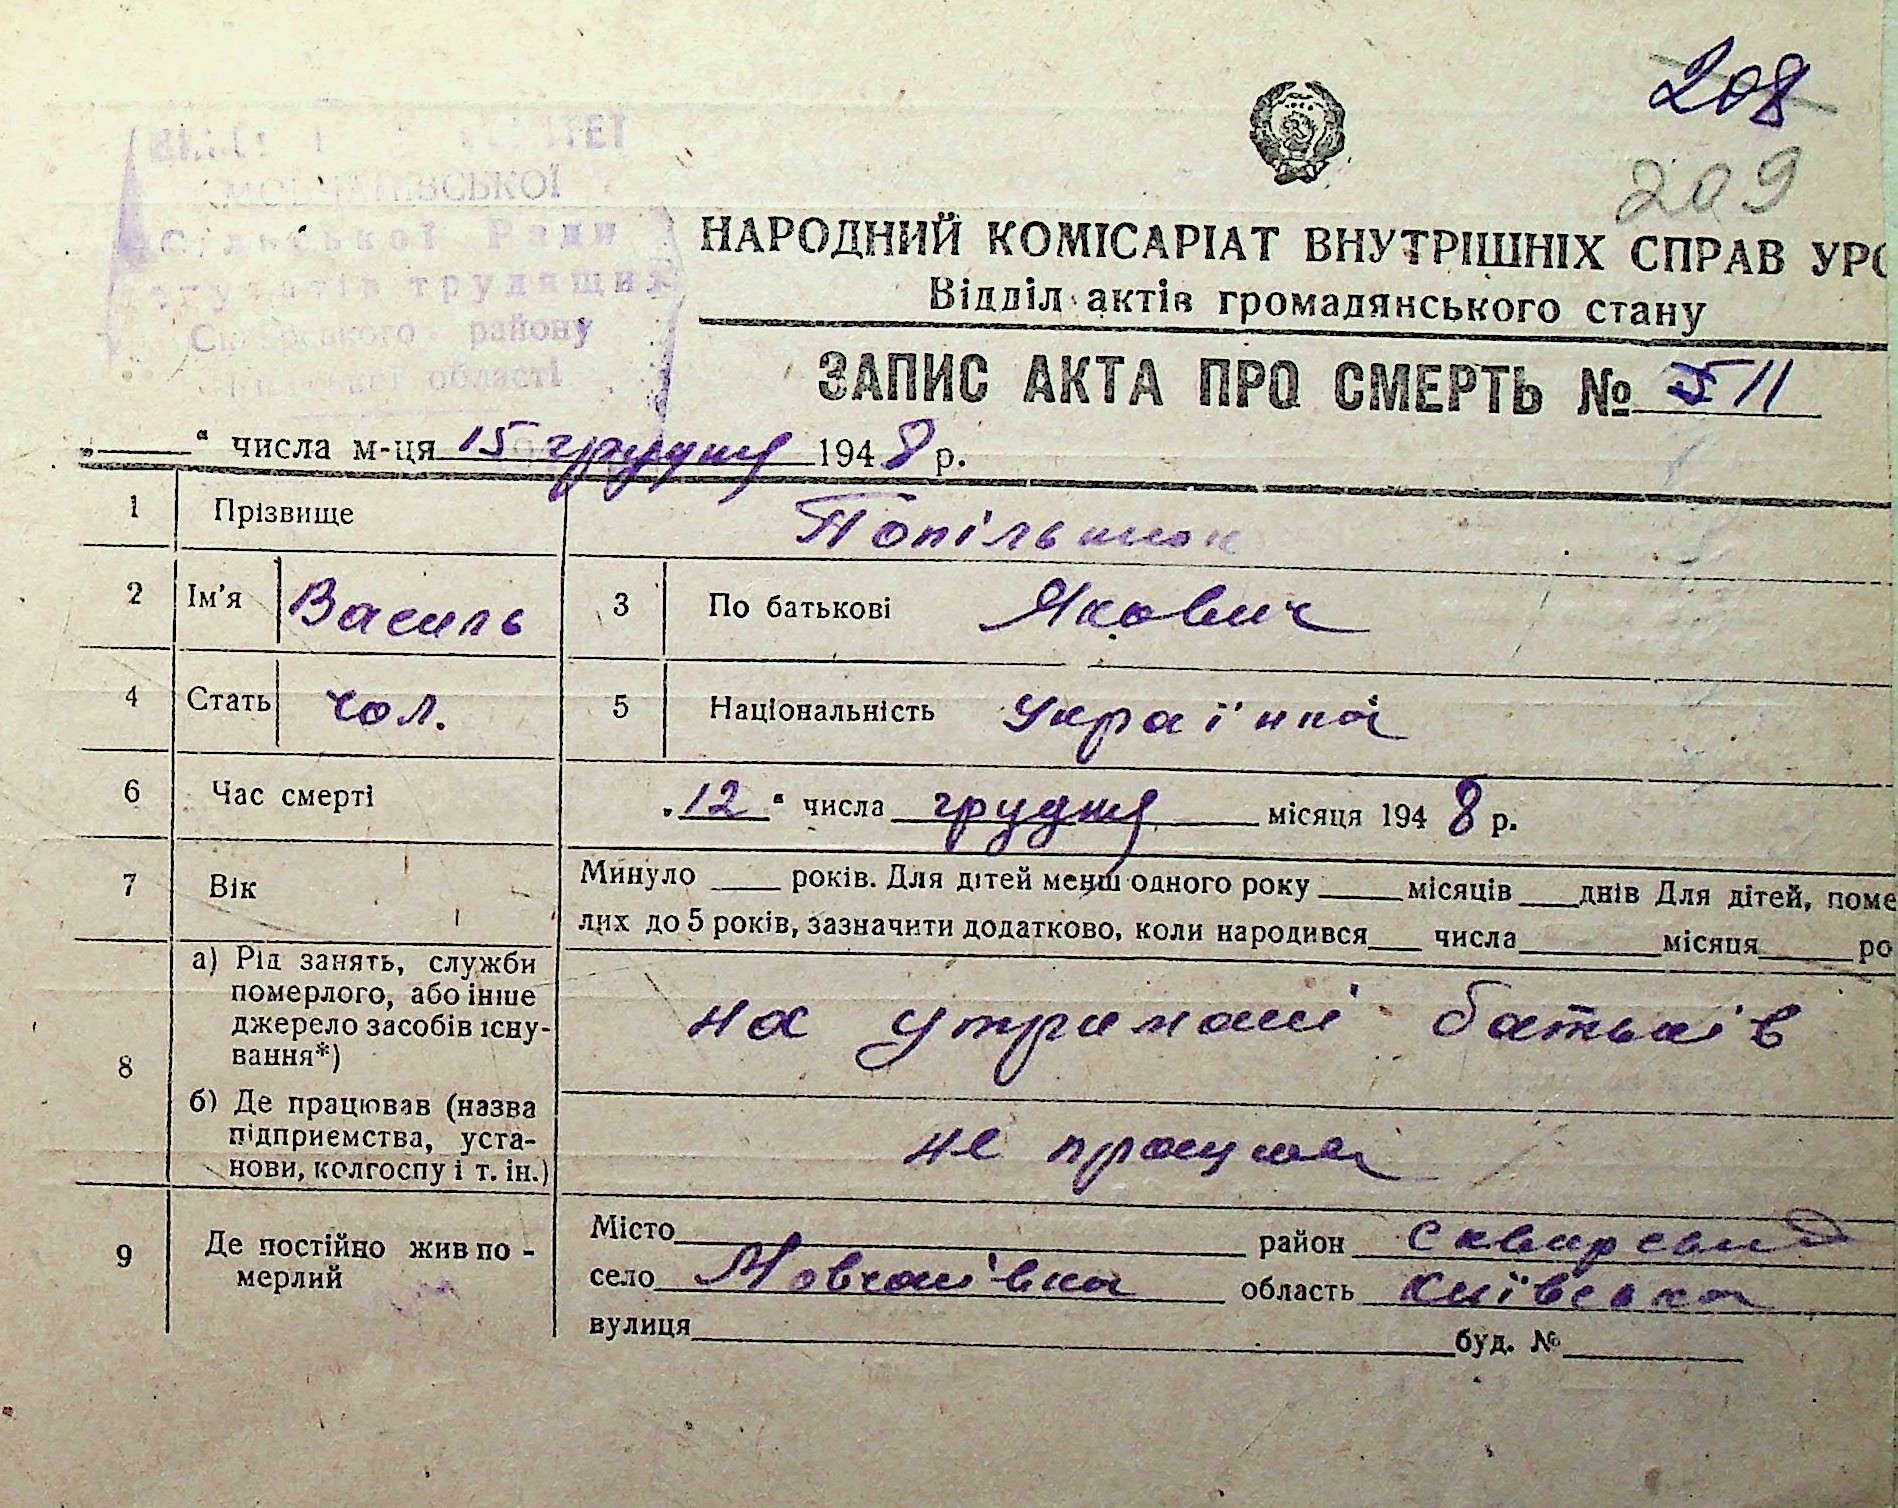 208
209
ТЕТ
ІВСЬКОЇ
Сільської Ради
депутатів трудящих
Сквирського району
області
НАРОДНИЙ КОМІСАРІАТ ВНУТРІШНІХ СПРАВ УРС
Відділ актів громадянського стану
ЗАПИС АКТА ПРО СМЕРТЬ № 511
„ “ числа м-ця 15 грудня 1948 р.
1 Прізвище
2 Ім'я Василь 3 По батькові Якович
4 Стать чол. 5 Національність Українка
6 Час смерті „12“ числа грудня місяця 1948 р.
7 Вік Минуло ____ років. Для дітей менш одного року ____ місяців ____ днів Для дітей, поме
лих до 5 років, зазначити додатково, коли народився ____ числа ____ місяця ____ ро
8 а) Рід занять, служби
померлого, або інше
джерело засобів існу-
вання*)
на утримані батьків
б) Де працював (назва
підприємства, уста-
нови, колгоспу і т. ін.)
не працює
9 Де постійно жив по-
мерлий
Місто ____ район Сквирський
село Мовчанівка область Київська
вулиця ____ буд. № ____